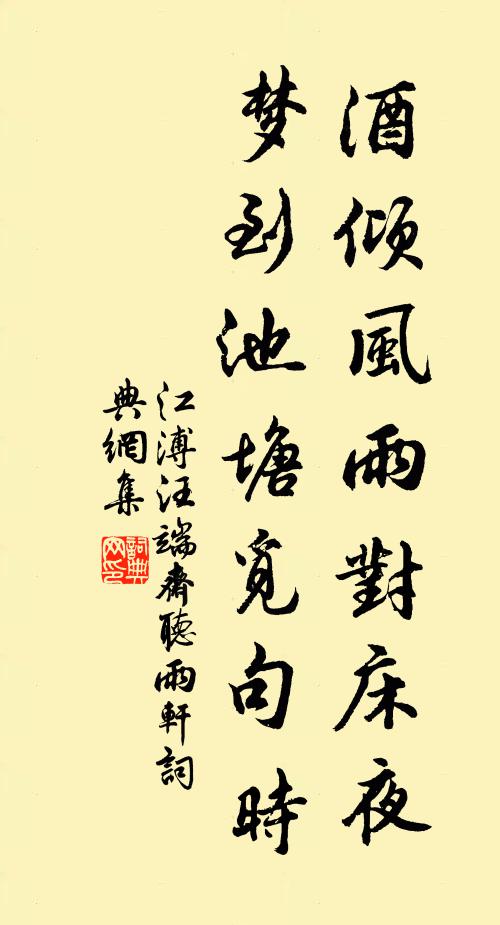 酒傾風雨對床夜
梦到池塘覓句時
江溥汪端齋聽雨軒詞
典網集
詞典
网印